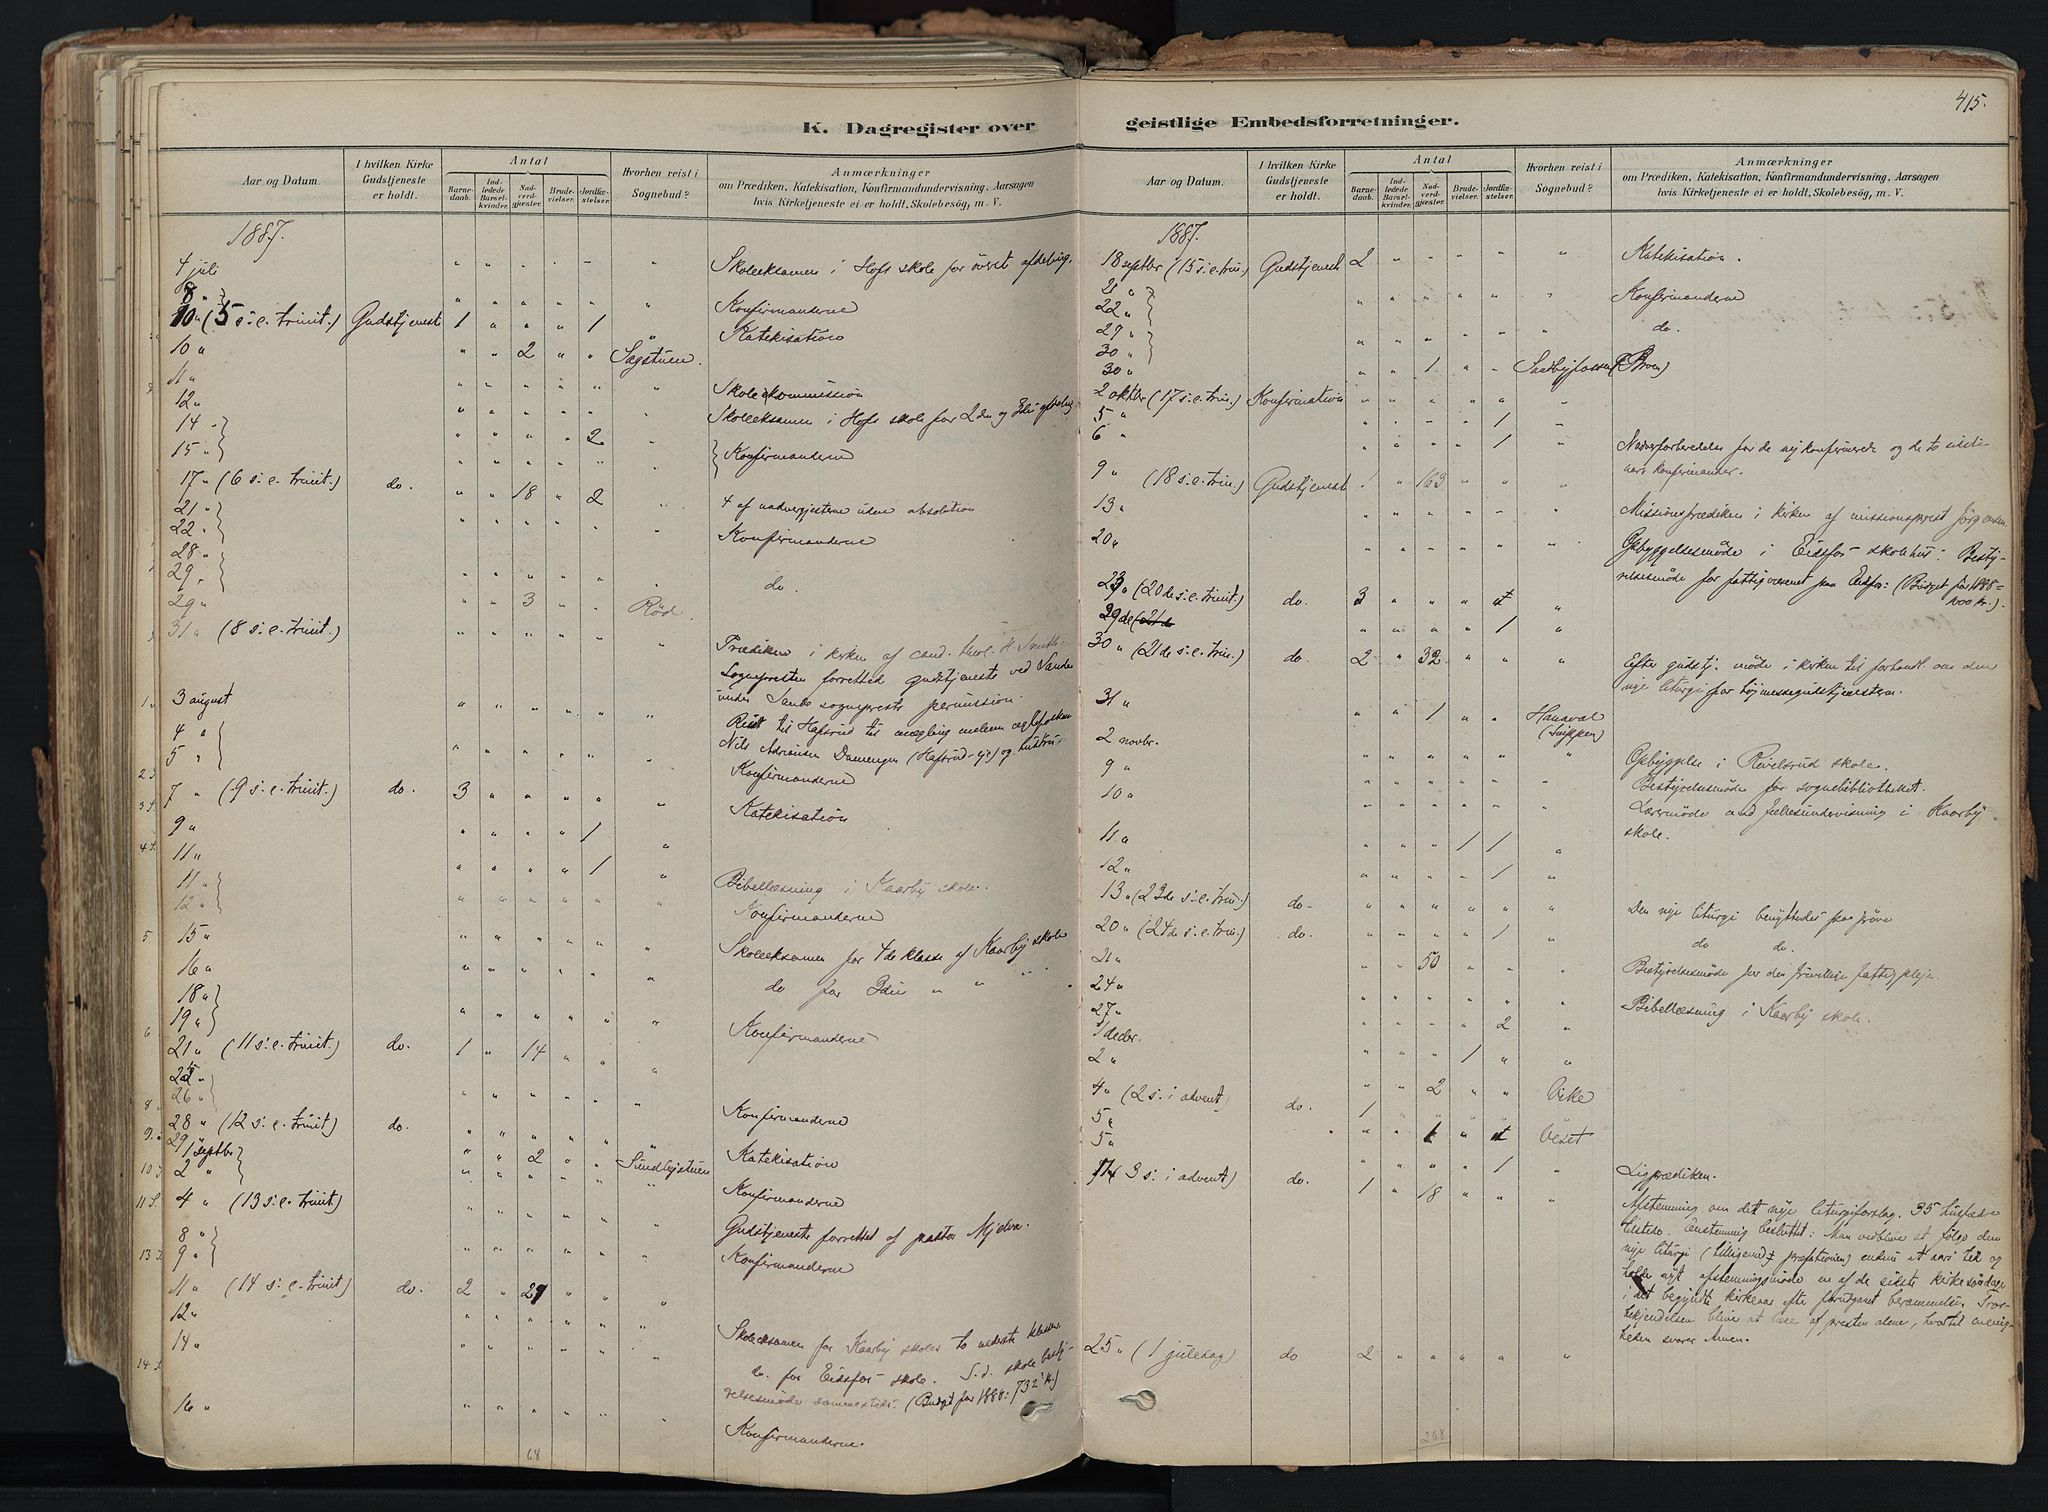 K. Dagregister over
Aar og Datum.
I hvilken Kirke Gudstjeneste er holdt.
Antal
Barne-daab.
Ind-ledede Barsel-kvinder.
Nad-verd-gjæster.
Brude-vielser.
Jordfæ-stelser.
Hvorhen reist i Sognebud?
Anmærkninger
om Prædiken, Katekisation, Konfirmandundervisning, Aarsagen
hvis Kirketjeneste ei er holdt, Skolebesøg, m. V.
1887.
4 juli " " " " " " Skoleeksamen i Hofs skole for øverste afdeling.
8 " " " " " " Konfirmanderne
10 " (5 s. e. trinit.) Gudstjeneste 1 " " " 1 " Katekisation
10 " " " 2 " " Sagstuen.
11 " " " " " " " Skolekommission
12 " " " " " " " Skoleeksamen i Hofs skole for 2den og 3die afdeling
14 " " " " " 2 "
15 " " " " " " " Konfirmanderne
17 " (6 s. e. trinit.) do. " " 18 " 2 " 4 af nadvergjesterne uden absolution
21 "
22 " " " " " " " Konfirmanderne
28 "
29 " " " " " " " do.
29 " " " 3 " " Röd.
31 " (8 s. e. trinit.) " " " " " " Prædiken i kirken af cand. theol. H. Smith.
Sognepresten forrettede gudstjeneste ved Sande
under Sande sogneprests permission.
3 august " " " " " " Reist til Hafsrud til mægling mellem ægtefolkene
Nils Adriansen Damengen (Hafsrud-eje) og hustru
4 "
5 " " " " " " " Konfirmanderne
7 " (9 s. e. trinit.) do. 3 " " " " " Katekisation
9 " " " " " 1 "
11 " " " " " 1 " Bibellæsning i Kaarby skole.
11 "
12 " " " " " " " Konfirmanderne
15 " " " " " " " Skoleeksamen for 4de klasse af Kaarby skole
16 " " " " " " " do for 3die " " "
18 "
19 " " " " " " " Konfirmanderne
21 " (11 s. e. trinit.) do. 1 " 14 " " "
25 "
26 " " " " " " " Konfirmanderne
28 " (12 s. e. trinit) do. " " " " " " Katekisation
29 " " 2 " " Sundbystuen
1 septbr
2 " " " " " " " Konfirmanderne
4 " (13 s. e. trinit) " " " " " " Gudstjeneste forrettet af pastor Mjelva.
8 "
9 " " " " " " " Konfirmanderne
11 " (14 s. e. trinit) do. 2 " 29 " " "
12 " " " " " " " Skoleeksamen for Kaarby skoles to nederste klasser
14 " " " " " " " do. for Eidsfos skole. S. d. skolebesty-
relsesmöde sammesteds. (Budget for 1888: 732 kr.)
16 " " " " " " " Konfirmanderne.
68
415.
geistlige Embedsforretninger.
Aar og Datum.
I hvilken Kirke Gudstjeneste er holdt.
Antal
Barne-daab.
Ind-ledede Barsel-kvinder.
Nad-verd-gjæster.
Brude-vielser.
Jordfæ-stelser.
Hvorhen reist i Sognebud?
Anmærkninger
om Prædiken, Katekisation, Konfirmandundervisning, Aarsagen
hvis Kirketjeneste ei er holdt, Skolebesøg, m. V.
1887.
18 septbr (15 s. e. trin.) Gudstjeneste 2 " " " " " Katekisation.
21 "
22 " " " " " " " Konfirmanderne
29 "
30 " " " " " " " do.
30 " " " 1 " " (Broen)
2 oktbr (17 s. e. trin.) Konfirmation " " " " " "
5 " " " " " 1 "
6 " " " " " 1 " Nadverforberedelse for de nykonfirmerede og de to
konfirmander.
9 " (18 s. e. trin.) Gudstjeneste 1 " 163 " " "
13 " " " " " " " Missionsprædiken i kirken af missionsprest Jörgensen
20 " " " " " " " Opbyggelsesmøde i Eidsfos skolehus: Besty-
relsesmøde for fattigvæsenet paa Eidsfos: (Budget for 1888 =
1000 kr.).
23 " (20de s. e. trinit.) do. 3 " " " "
29de " " " " 1 "
30 " (21de s. e. trin.) do. 2 " 32 " " " Efter gudstj. møde i kirken til forhandl. om den
nye liturgi for höjmessegudstjenesten.
31 " " " 1 " " Hanaval
2 novbr. " " " " " " Opbyggelse i Revelsrud skole.
9 " " " " " " " Bestyrelsesmøde for sognebibliotheket.
10 " " " " " " " Læremøde med fællesundervisning i Kaarby
skole.
11 " " " " 1 1 "
12 " " " " " 1 "
13 " (23de s. e. trin.) do. " " " " " " Den nye liturgi benyttedes paa prøve
20 " (24de s. e. trin.) do. " " " " 1 " do do.
21 " " " 50 " " " Bestyrelsesmøde for den frivillige fattigpleje.
24 " " " " " " " Bibellæsning i Kaarby skole.
27 " " " " " 2 "
1 decbr. " " " 1 " "
2 " " " 2 " " Vike
4 " (2 s. i advent) do. 1 " " " " "
5 " " " 1 " Veset
5 " " " " " 1 " Ligprædiken.
11 " (3 s. i advent) do. 1 " 18 " " " Afstemning om det nye liturgiforslag. 35 husfædre
tilstede. Enstemmig besluttet: Man vedblive at følge den
nye liturgi (tilligemed præfationen) endnu et aars tid og
holde nyt afstemningsmøde en af de sidste kirkesøndage
i det begyndte kirkeaar efter forudgaaet berammelse. Tros-
bekjendelsen blive at læse af presten alene, hvortil menig-
heden svarer Amen.
25 " (1 juledag) do 2 " " " " "
268